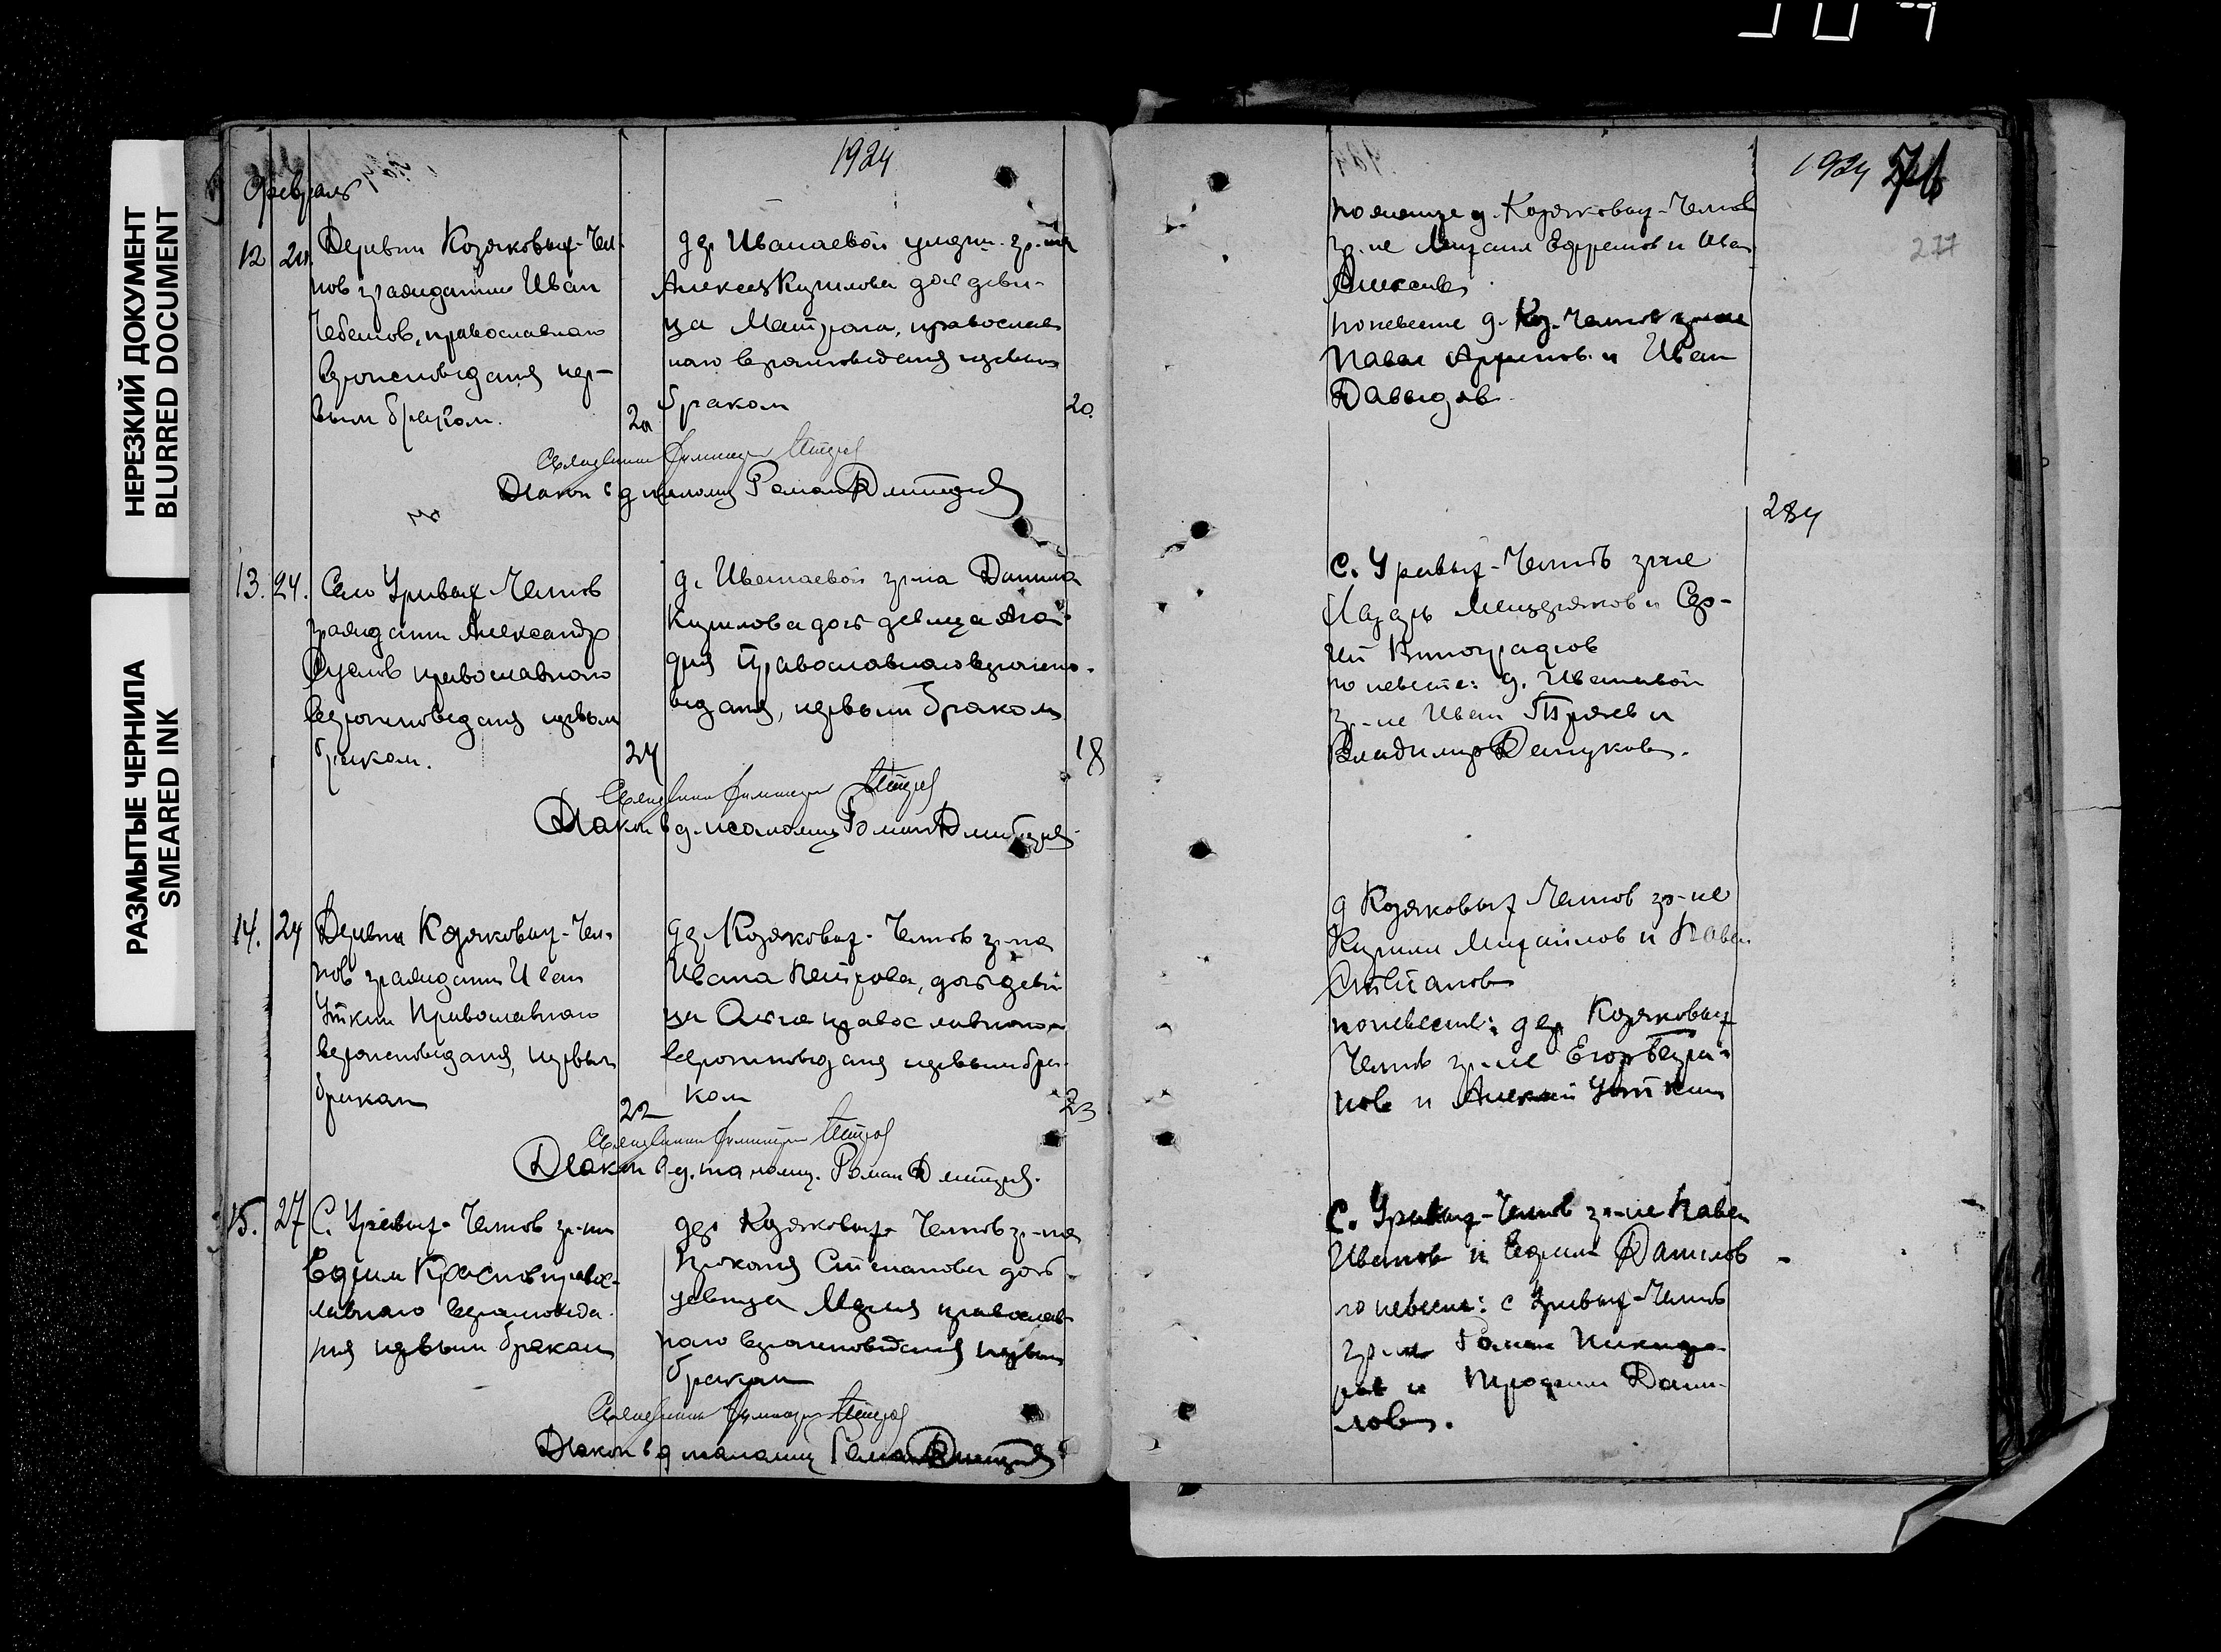 НЕРЕЗКИЙ ДОКУМЕНТ
BLURRED DOCUMENT
РАЗМЫТЫЕ ЧЕРНИЛА
SMEARED INK
1924
Февраль
12 24 Деревни Козяковых-Чел-
нов гражданин Иван
православнаго
вероисповеданія пер-
вым браком.
20
дер. Иванаевой гр-на
Алексея Кириллова дочь деви-
ца Матрона, православ
наго вероисповеданія первым
браком
20.
Священник Димитрий Петров
Диакон в д. псаломщ Роман Дмитриев
13. 24. Село Урывых Челнов
гражданин Александр
православнаго
вероисповеданія первым
браком.
24
д. Иванаевой гр-на Данила
Кириллова дочь девица
православнаго вероиспо-
веданія, первым браком
18
Священник Димитрий Петров
Диакон в д. псаломщ Роман Дмитриев
14. 24 Деревни Козяковых-Чел-
нов гражданин Иван
Уткин Православнаго
вероисповеданія, первым
браком
22
дер. Козяковых-Челнов гр-на
Ивана Петрова, дочь деви
ца православнаго
вероисповеданія первым бра-
ком
23
Священник Димитрий Петров
Диакон в д. псаломщ. Роман Дмитриев.
15. 27 С. Урывых-Челнов гр-н
Ефим Краснов правос-
лавнаго вероисповеда-
нія первым браком
дер Козяковых Челнов гр-на
Прокопія Степанова дочь
девица Марія православ-
наго вероисповеданія первым
браком
Священник Димитрий Петров
Диакон в д псаломщ Роман Дмитриев
1924
277
по жениху д. Козяковых-Челнов
гр-не Михаил Ефремов и Иван
Алексеев
по невесте д. Коз. Челнов гр-не
Павел и Иван
Давыдов.
284
с. Урывых-Челнов гр-не
Лазарь Мещеряков и Сер-
гей Виноградов
по невесте: д. Иванаевой
гр-не Иван и
Владимир
д Козяковых Челнов гр-не
Кирилл Михайлов и Павел
Степанов
по невесте: дер Козяковых
Челнов гр-не Егор
нов и Алексей Уткин
с. Урывых-Челнов гр-не Павел
Иванов и Ефим Данилов
по невесте: с Урывых-Челнов
гр-не Роман
ров и Трофим Дани-
лов.